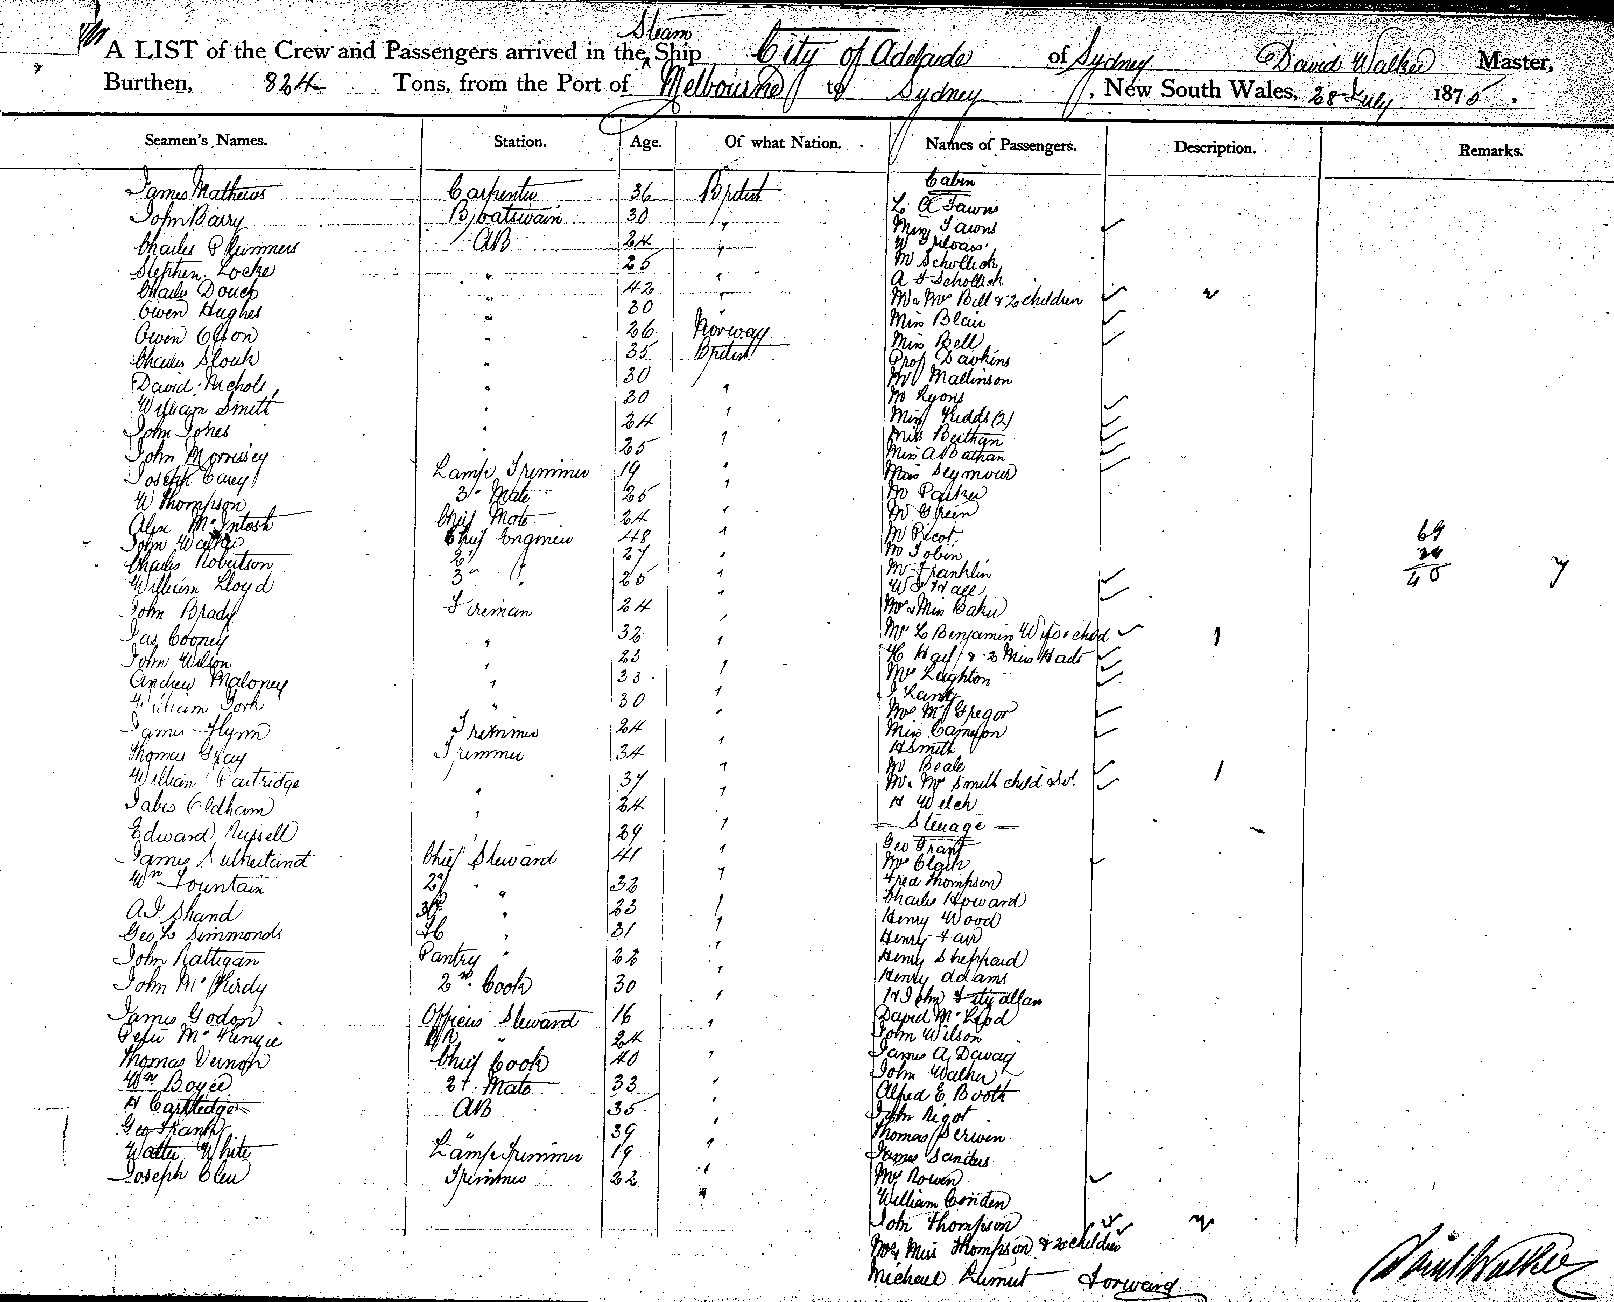 Steam
A LIST of the Crew and Passengers arrived in the Ship City of Adelaide of Sydney David Walker Master,
Burthen, 824 Tons, from the Port of Melbourne to Sydney, New South Wales, 28 July 1875.
Seamen's Names. Station. Age. Of what Nation. Names of Passengers. Description. Remarks.
James Mathews Carpenter 36 British
John Barry Boatswain 30 "
Charles AB 24 "
Stephen Locke " 25 "
Charles " 42 "
Owen Hughes " 30
Owen Olson " 26 Norway
Charles " 35 British
David Nichols " 30 "
William Smith " 30 "
John Jones " 24 "
John Morrissey " 25 "
Joseph Carey Lamp Trimmer 19 "
W Thompson 3rd Mate 25 "
Alex McIntosh Chief Mate 24 "
John Chief Engineer 48 "
Charles Robertson 2 " 27 "
William Lloyd 3 " 25 "
John Brady Fireman 24 "
Jas Cooney " 32 "
John Wilson " 23 "
Andrew Maloney " 33 "
William York " 30 "
James Flynn Trimmer 24 "
Thomas Gray Trimmer 34 "
William Partridge 37 "
Oldham " 24 "
Edward Russell " 29 "
James Sutherland Chief Steward 41 "
Wm Fountain 2d " 32 "
A J Shand 3d " 23 "
Geo L Simmonds 4th " 31 "
John Rattigan Pantry " 22 "
John 2nd Cook 30 "
James Godon Officers Steward 16 "
Peter McKenzie " 24
Thomas Vernon Chief Cook 40 "
Wm Boyce 2d Mate 33 "
H Cartledge AB 35 "
Geo Frank " 39
Walter White Lamp Trimmer 19 "
Joseph Trimmer 22 "
Cabin
L A Fawns
Miss Fawns
W
M Schollick
A J Schollick
Mr & Mrs Bell & 2 children
Miss Blair
Miss Bell
Prof Dawkins
Mr Mallinson
Mr Lyons
Miss Kidds (2)
Miss
Miss A
Miss Seymour
Mr Parker
Mr Green
Mr Picot
Mr Tobin
Mr Franklin
W J Hall
Mr & Miss Baker
Mr L Benjamin Wife & child
H & 2 Miss
Mrs Leighton
J Lang
Mrs McGregor
Miss Cameron
H Smith
Mr Beale
Mr & Mrs Smith child & Svt.
H Welch
Steerage
Geo Grant
Mrs Clark
Fred Thompson
Charles Howard
Henry Wood
Henry Fair
Henry Sheppard
Henry Adams
H John Fitzallan
David McLeod
John Wilson
James A
John Walker
Alfred E Booth
John
Thomas
James Sanders
Mrs Rowen
William Conden
John Thompson
Mrs & Miss Thompson & 2 children
Michael Forward
69
24
45
David Walker